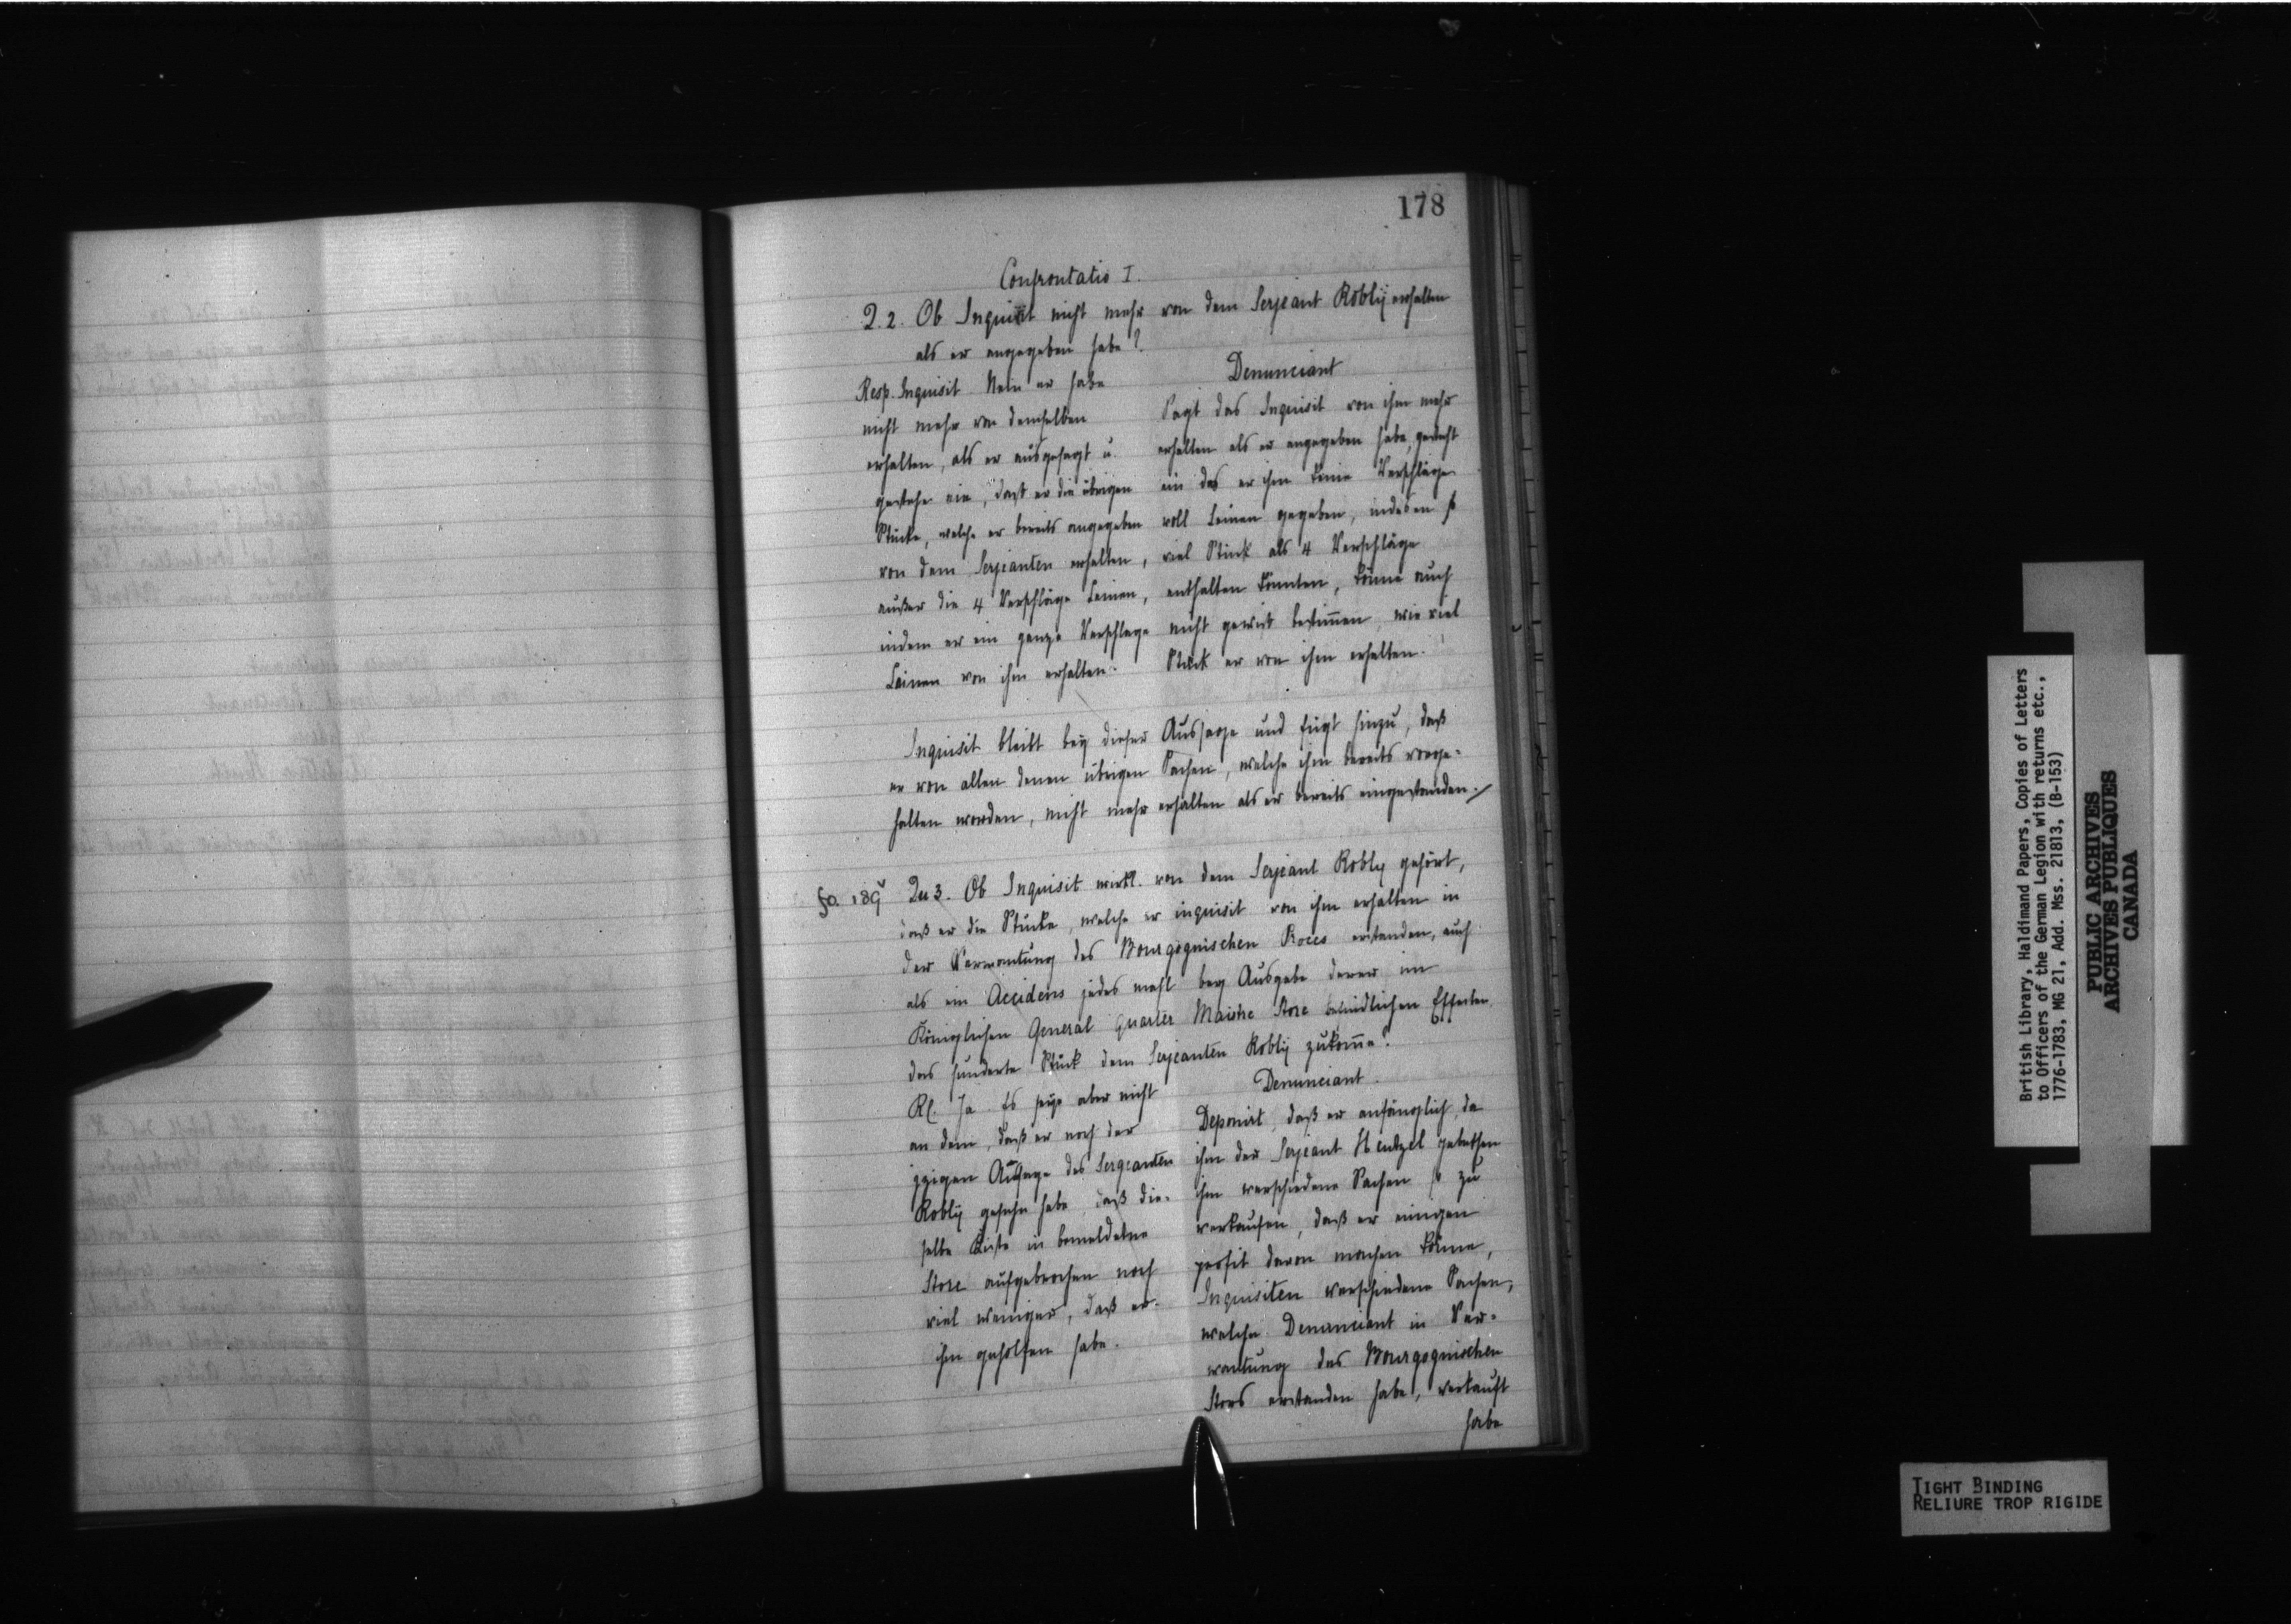 178
Confrontatio I.
Q. 2. Ob Inquisit nicht mehr von dem Serjeant Robly erhalten
als er angegeben habe?
Resp. Inquisit Nein er habe
nicht mehr von demselben
erhalten, als er ausgesagt u.
gestehe ein, daß er die übrigen
Stücke, welche er bereits angegeben
von dem Serjeanten erhalten,
außer die 4 Verschläge Leinen,
indem er ein ganze Verschlage
Leinen von ihm erhalten.
Denunciant
Sagt das Inquisit von ihm mehr
erhalten als er angegeben habe, gesteht
ein das er ihm keine Verschläge
voll Leinen gegeben, indeßen so
viel Stück als 4 Verschläge
enthalten könnten, könne auch
nicht gewiß bestimmen, wie viel
Stück er von ihm erhalten.
Inquisit bleibt bey dieser Aussage und fügt hinzu, daß
er von allen denen übrigen Sachen, welche ihm bereits vorge-
halten worden, nicht mehr erhalten als er bereits eingestanden./
fo. 189v Qu 3. Ob Inquisit wirkl. von dem Serjeant Robly gehört,
daß er die Stücke, welche er inquisit von ihm erhalten in
der Verwantung des Bourgognischen erstanden, auch
als ein Accidens jedes mahl bey Ausgabe derer im
Königlichen General Quarter Maistre Store befindlichen Effecten
das hunderte Stück dem Serjeanten Robly zukomme?
Rl. Ja. Es seye aber nicht
an dem, daß er nach der
jzigen Außage des Sergeanten
Robly gesehn habe, daß die-
selbe Kiste in bemeldetem
Store aufgebrochen noch
viel weniger, daß er
ihm geholfen habe.
Denunciant.
Deponirt, daß er anfänglich, da
ihm der Serjeant Hentzel gebethen
ihm verschiedene Sachen zu
verkaufen, daß er einigen
profit davon machen könne,
Inquisiten verschiedene Sachen,
welche Denunciant in Ver-
wantung des Bourgognischen
Stors erstanden habe, verkauft
habe
British Library, Haldimand Papers, Copies of Letters
to Officers of the German Legion with returns etc.,
1776-1783, MG 21, Add. Mss. 21813, (B-153)
PUBLIC ARCHIVES
ARCHIVES PUBLIQUES
CANADA
TIGHT BINDING
RELIURE TROP RIGIDE